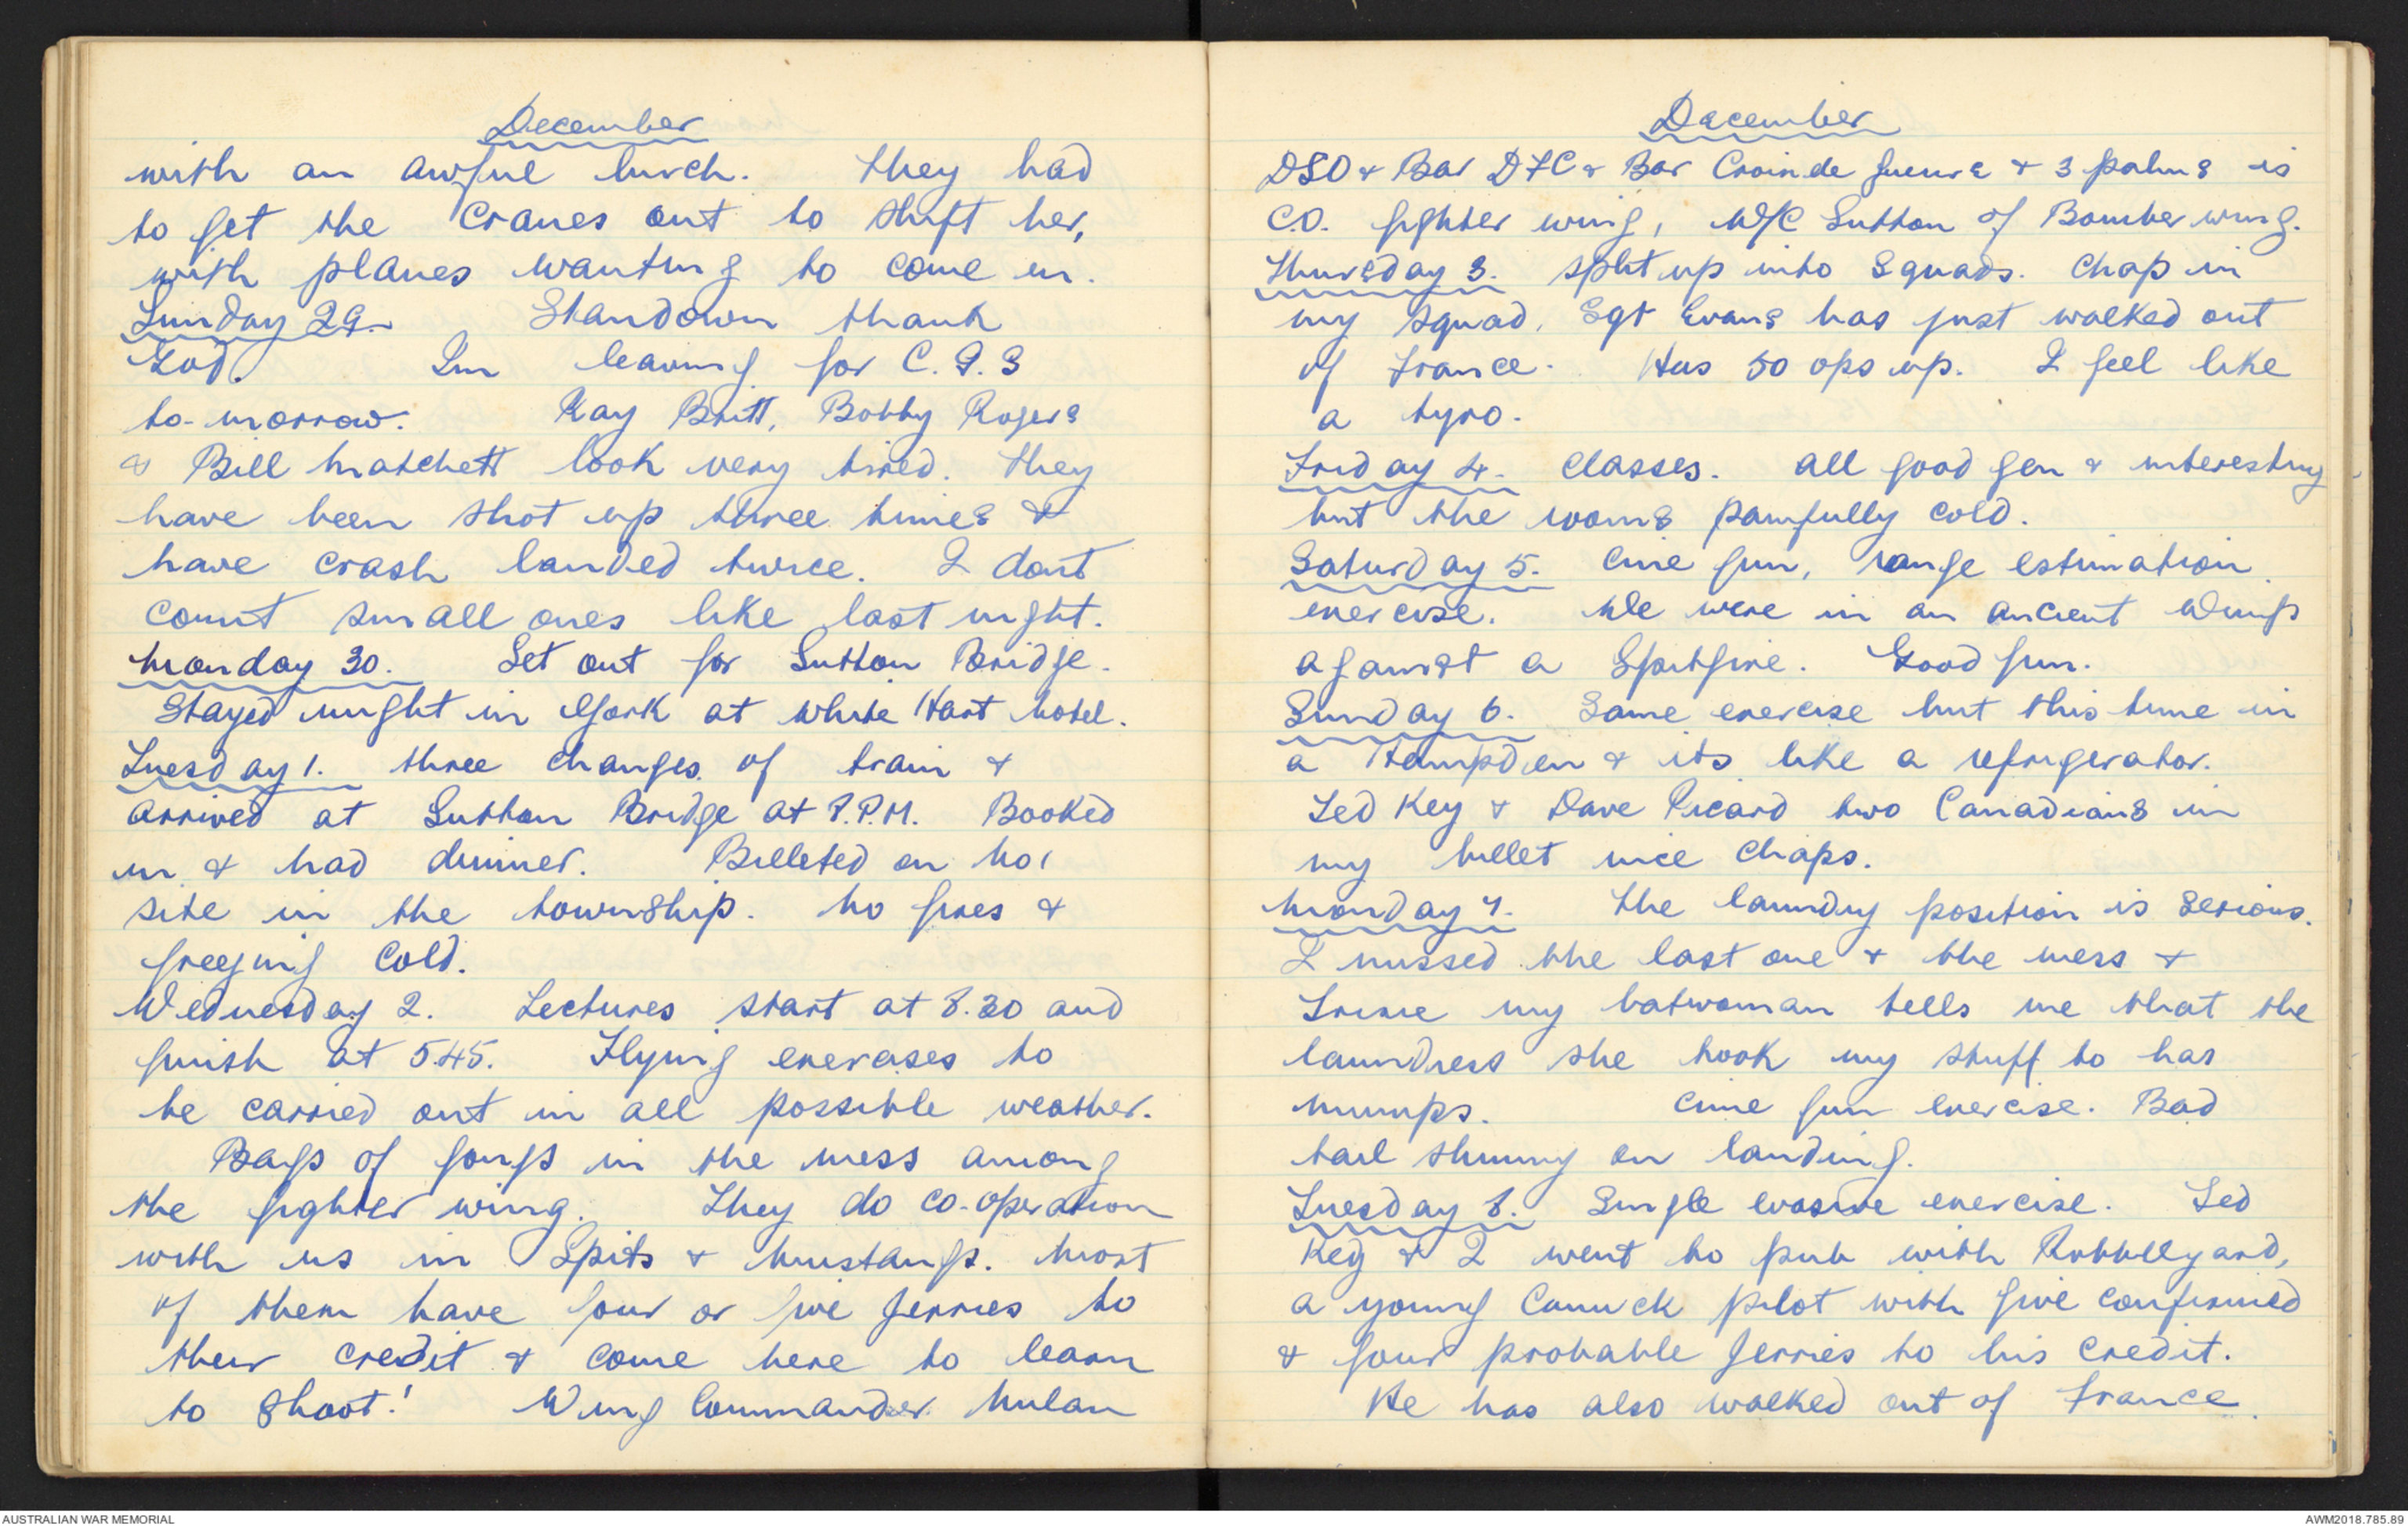 December
with an awful lurch. They had
to get the cranes out to shift her,
with planes wanting to come in.
Sunday 29. Standown thank
God. Im leaving for C.G.S
to-morrow. Kay Britt, Bobby Rogers
& Bill Matchett look very tired. They
have been shot up three times &
have crash landed twice. I dont
count small ones like last night.
Monday 30. Set out for Sutton Bridge.
Stayed night in York at White Hart hotel.
Tuesday 1. Three changes of train &
arrived at Sutton Bridge at 8.P.M. Booked
in & had dinner. Billeted on No1
site in the township. No fires &
freezing cold.
Wednesday 2. Lectures start at 8.30 and
finish at 5.45. Flying exercises to
be carried out in all possible weather.
Bags of gongs in the mess among
the fighter wing. They do co-operation
with us in Spits & Mustangs. Most
of them have four or five Jerries to
their credit & come here to learn
to shoot! Wing Commander Malan
December
DSO & Bar DFC & Bar Croix de Guerre & 3 palms is
C.O. fighter wing, W/C Sutton of Bomber wing.
Thursday 3. Split up into squads. Chap in
my squad, Sgt Evans has just walked out
of France. Has 50 ops up. I feel like
a tyro.
Friday 4. Classes. All good gen & interesting
but the rooms painfully cold.
Saturday 5. Cine gun, range estimation
exercise. We were in an ancient Wimp
against a Spitfire. Good fun.
Sunday 6. Same exercise but this time in
a Hampden & its like a refrigerator.
Ted Key & Dave Picard two Canadians in
my billet nice chaps.
Monday 7. The laundry position is serious.
I missed the last one & the mess &
my batwoman tells me that the
laundress she took my stuff to has
mumps. Cine gun exercise. Bad
tail shimmy on landing.
Tuesday 8. Single evasive exercise. Ted
Key & I went to pub with Robbllyard,
a young Canuck pilot with five confirmed
& four probable Jerries to his credit.
He has also walked out of France.
AUSTRALIAN WAR MEMORIAL
AWM2018.785.89